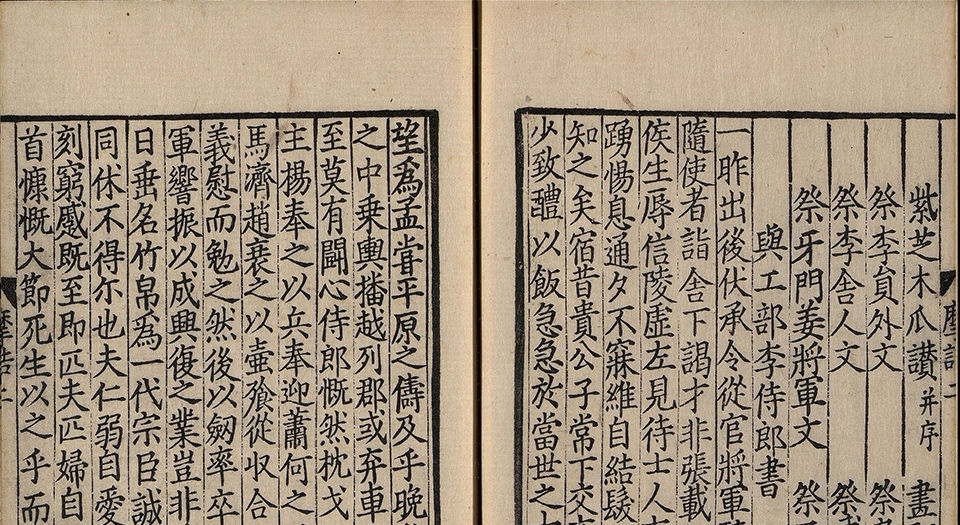 摩詰二
紫芝木瓜讃并序 畫
祭李貟外文 祭
祭李舎人文 祭
祭牙門姜將軍文 祭
與工部李侍郎書
一昨出後伏承令從官將軍
隨使者詣舎下謁才非張載
侯生辱信陵虛左見待士人
踴惕息通夕不寐維自結髮
知之矣宿昔貴公子常下交
少致醴以飯急急於當世之
望爲孟甞平原之儔及乎晚
之中乗輿播越列郡或弃車
至莫有鬪心侍郎慨然枕戈
主楊奉之以兵奉迎蕭何之
馬濟趙衰之以壷飱從収合
義慰而勉之然後以劔率卒
軍響振以成興復之業豈非
日垂名竹帛爲一代宗臣誠
同休不得尓也夫仁弱自愛
刻窮慼既至即匹夫匹婦自
首慷慨大節死生以之乎而